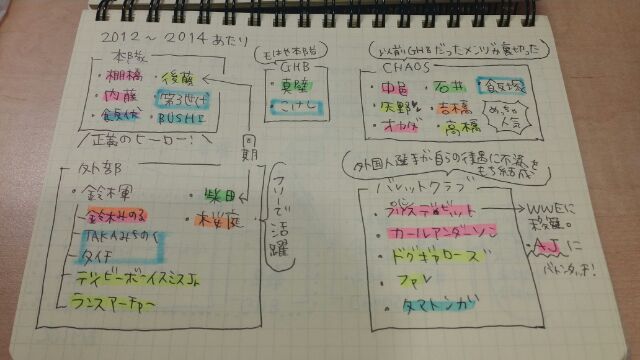 2012～2014あたり
本隊
・棚橋 ・後藤
・内藤 ・第3世代
・飯伏 ・BUSHI
正義のヒーロー!
同期
もはや本隊
GHB
・真壁
・こけし
以前GHBだったメンツが裏切った
CHAOS
・中邑 ・石井 ・飯塚
・矢野 ・吉橋
・オカダ ・高橋
めっちゃ人気
外部
・鈴木軍 ・柴田
鈴木みのる ・桜庭
TAKAみちのく
タイチ
デイビーボーイスミスJr
ランスアーチャー
フリーで活躍
外国人選手が自らの待遇に不満をもち結成
バレットクラブ
・プリンスデヴィット
・カールアンダーソン
・ドグギャローズ
・ファレ
・タマトンガ
WWEに移籍。
AJに
バトンタッチ!